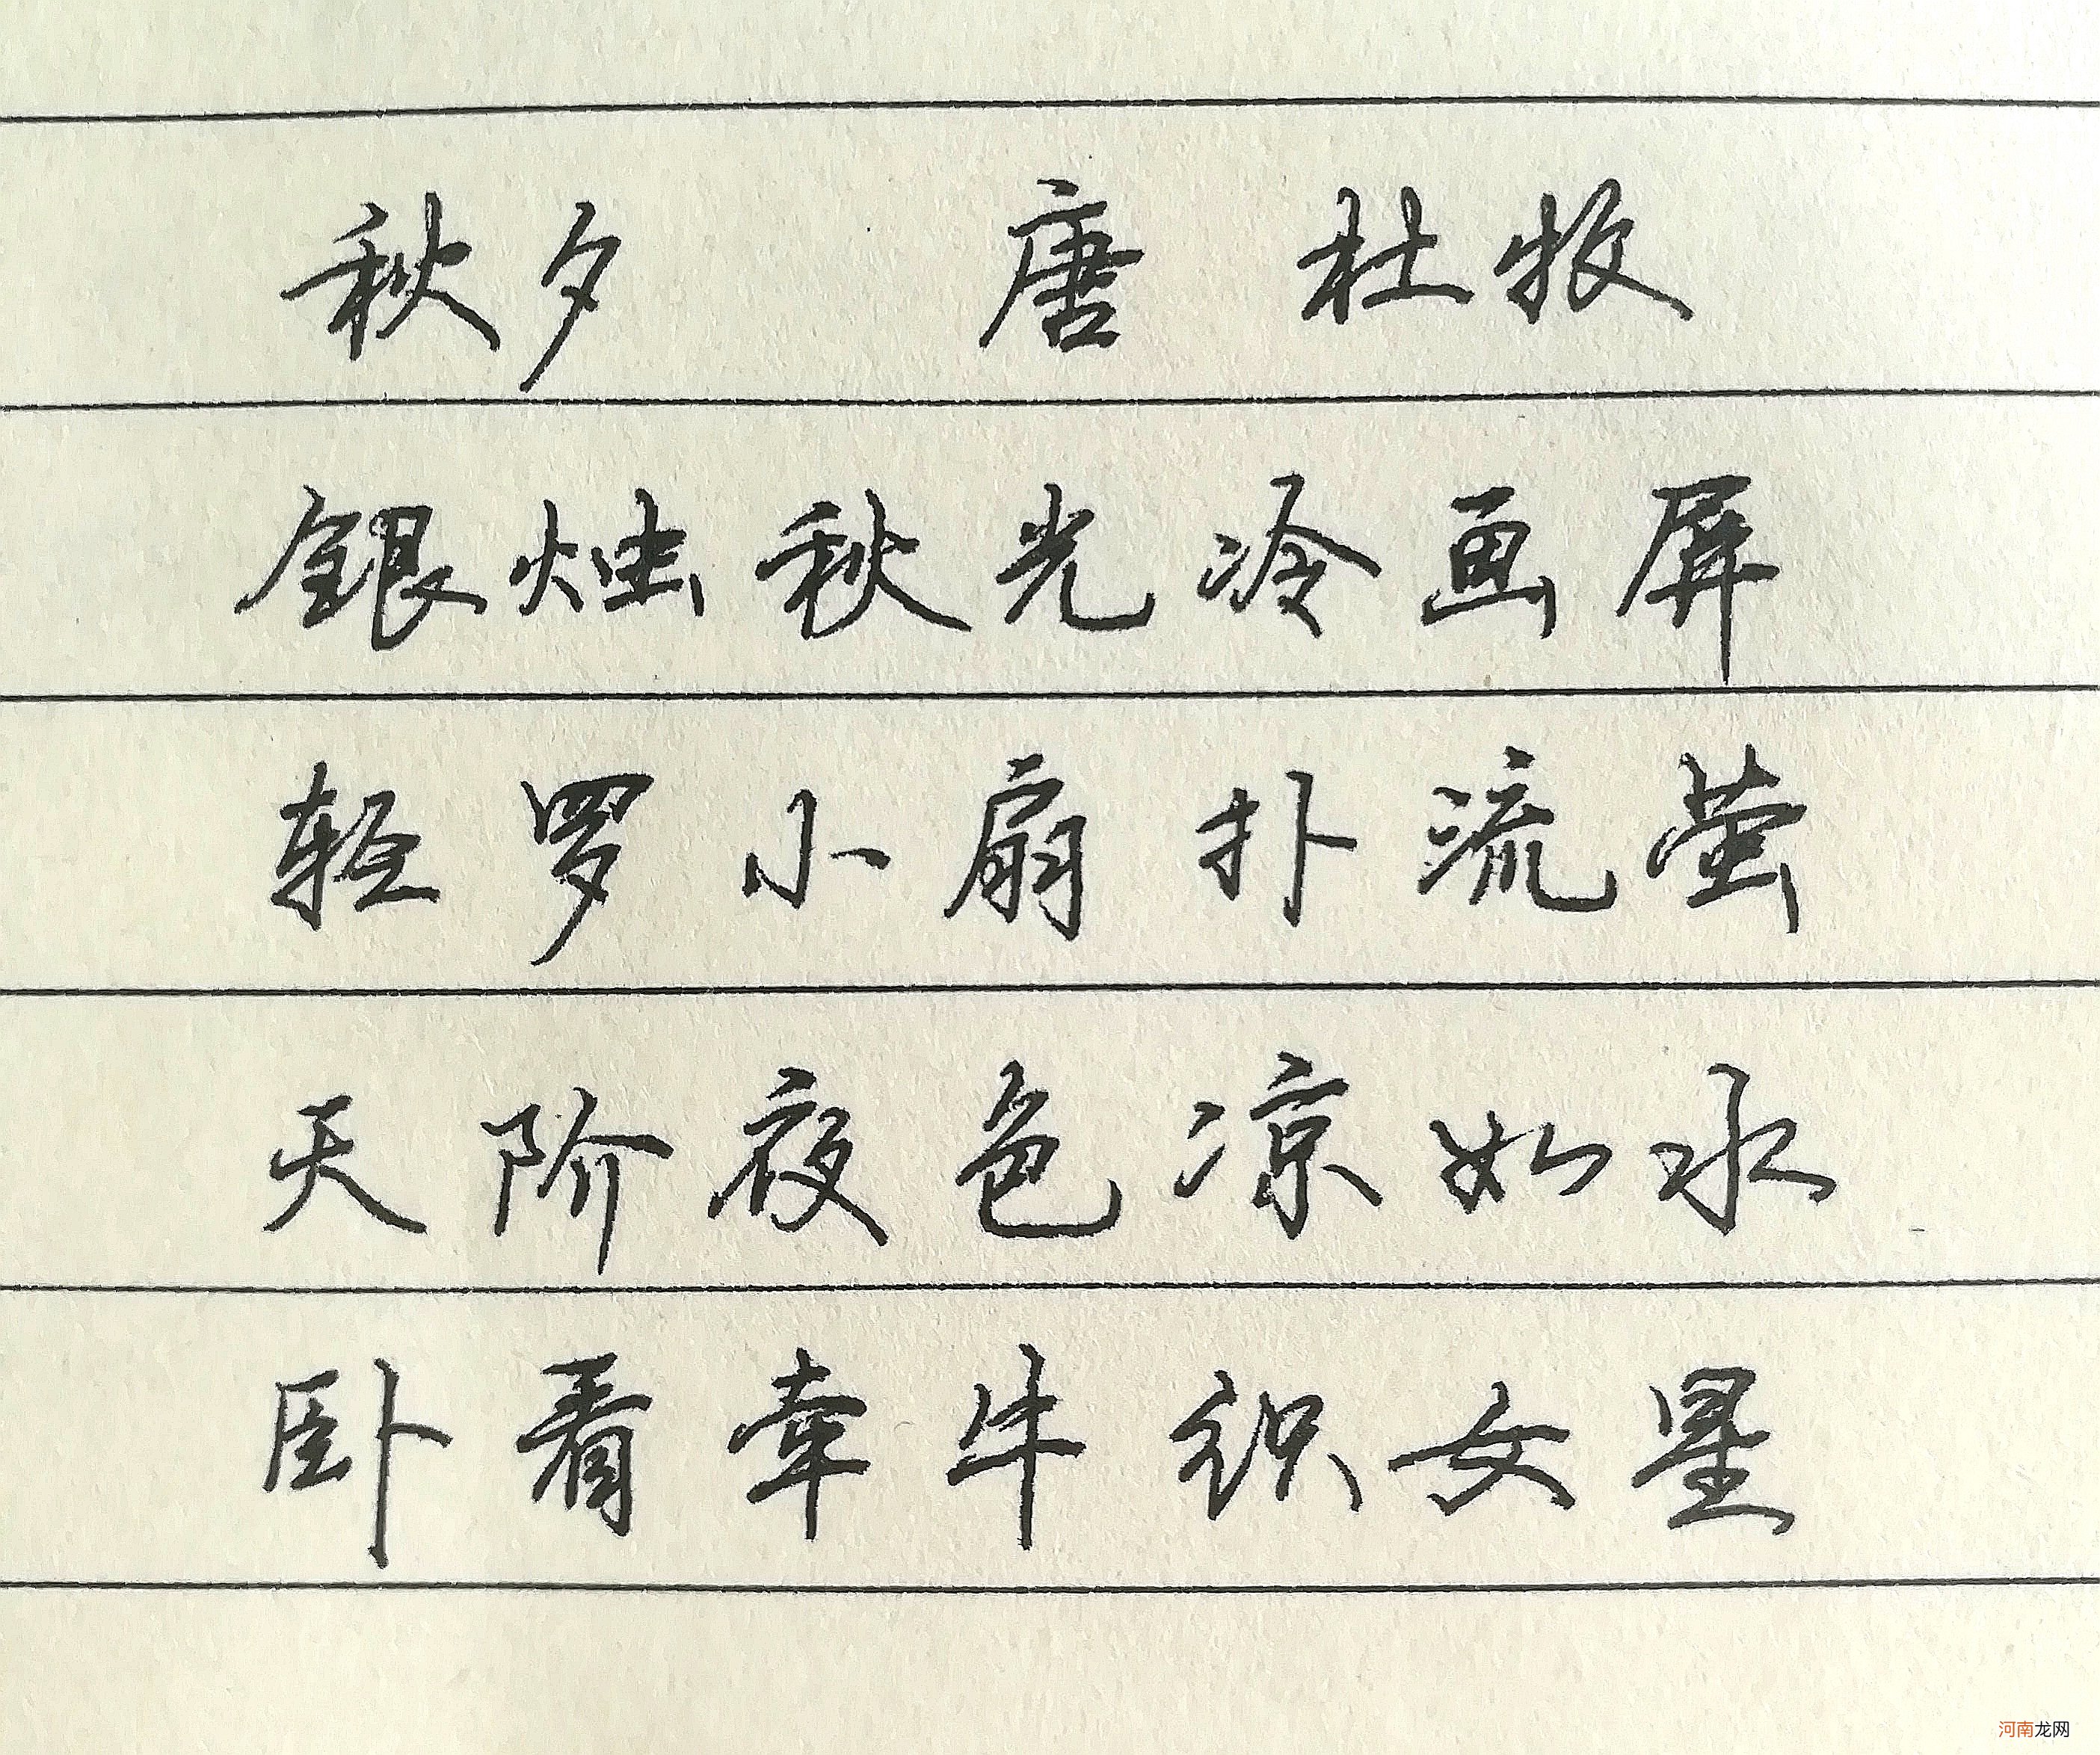 秋夕 唐 杜牧
銀烛秋光冷画屏
轻罗小扇扑流萤
天阶夜色凉如水
卧看牵牛织女星
河南龙网